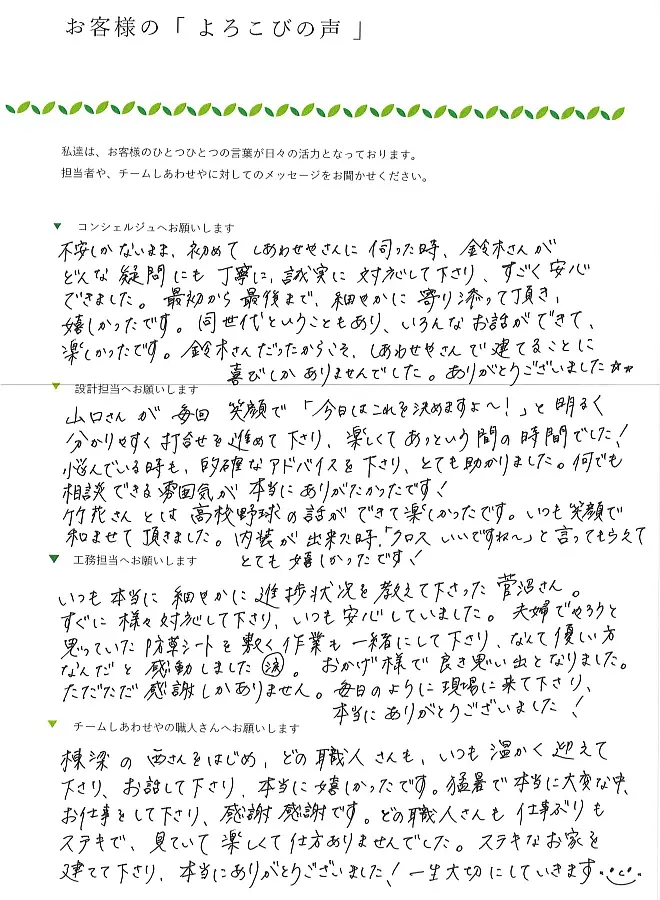 お客様の「よろこびの声」
私達は、お客様のひとつひとつの言葉が日々の活力となっております。
担当者や、チームしあわせやに対してのメッセージをお聞かせください。
▼ コンシェルジュへお願いします
不安しかないまま、初めて しあわせやさんに 伺った時、鈴木さんが
どんな 疑問にも 丁寧に、誠実に 対応して下さり、すごく安心
できました。最初から 最後まで、細やかに 寄り添って頂き、
嬉しかったです。同世代ということもあり、いろんなお話ができて、
楽しかったです。鈴木さんだったからこそ、しあわせやさんで建てることに
喜びしかありませんでした。ありがとうございました☆☆
▼ 設計担当へお願いします
山口さん が 毎回 笑顔で「今日はこれを決めますよ〜!」と 明るく
分かりやすく 打合せを 進めて 下さり、楽しくてあっという間の時間でした!
悩んでいる時も、的確なアドバイスを下さり、とても助かりました。何でも
相談できる雰囲気が 本当にありがたかったです!
竹花さん とは 高校野球の話が できて楽しかったです。いつも笑顔で
和ませて頂きました。内装が出来た時、「クロス いいですね〜」と言ってもらえて
とても 嬉しかったです!
▼ 工務担当へお願いします
いつも 本当に 細やかに 進捗状況を 教えて下さった 菅沼さん。
すぐに 様々 対応して下さり、いつも安心していました。夫婦でやろうと
思っていた 防草シートを 敷く作業も 一緒にして下さり、なんて優しい方
なんだと 感動しました(涙)。おかげ様で良き思い出となりました。
ただただ 感謝しかありません。毎日のように現場に来て下さり、
本当に ありがとうございました!
▼ チームしあわせやの職人さんへお願いします
棟梁 の 西さんをはじめ、どの職人さんも、いつも 温かく 迎えて
下さり、お話して下さり、本当に嬉しかったです。猛暑で本当に大変な中、
お仕事をして下さり、感謝感謝です。どの職人さんも 仕事ぶりも
ステキで、見ていて 楽しくて仕方ありませんでした。ステキなお家を
建てて下さり、本当にありがとうございました! 一生大切にしていきます